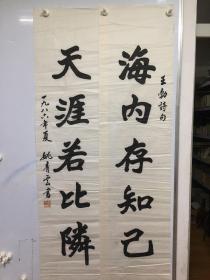 海内存知己
王勃诗句
天涯若比隣
一九八六年夏 姚青云书